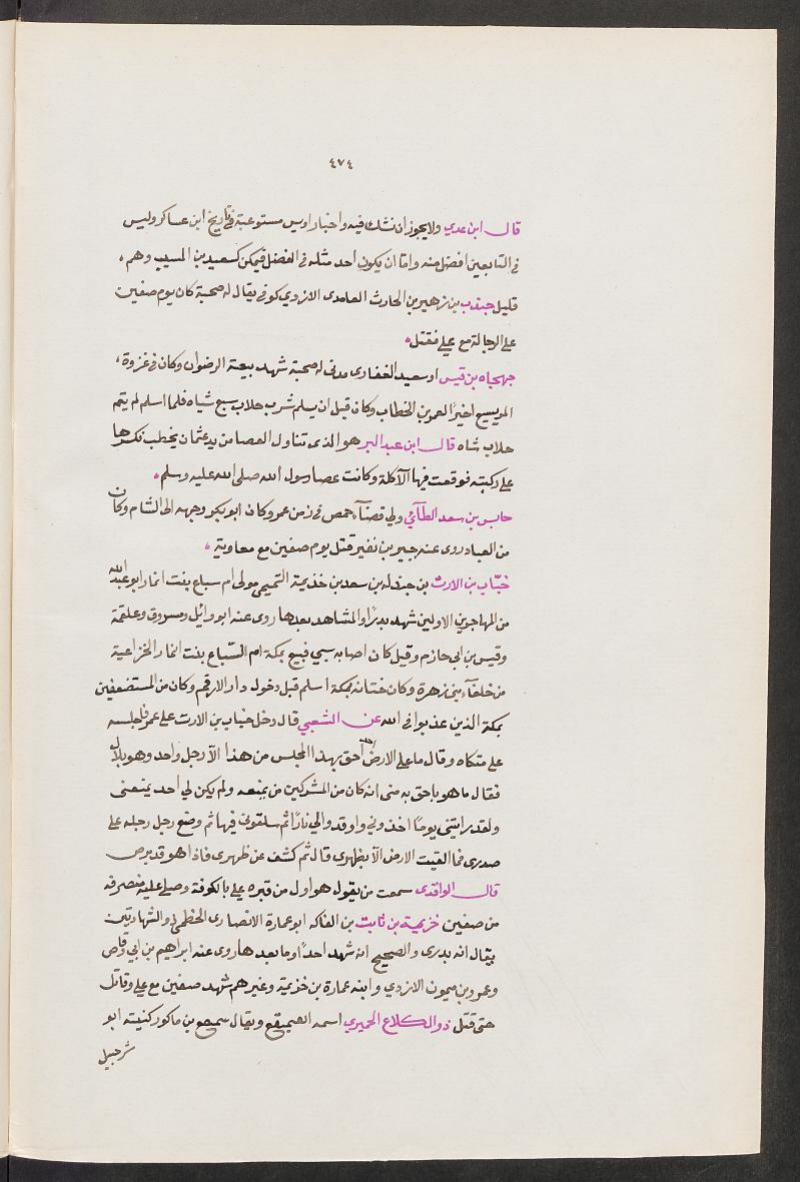 ٤٧٤
قال ابن عدي ولا يجوز ان نشك فيه واخبار اويس مستوعبة في تاريخ ابن عساكر وليس
في التابعين افضل منه واما ان يكون احد مثله في الفضل فيمكن كسعيد بن المسيب وهم
قليل جندب بن زهير بن الحارث الغامدى الازدي كوفى يقال له صحبة كان يوم صفين
على الرجالة مع علي فقتل
جهجاه بن قيس او سعيد الغفارى مدنى له صحبة شهد بيعة الرضوان وكان في غزوة
المريسيع اخيرا لعمر بن الخطاب وكان قبل ان يسلم شرب حلاب سبع شياه فلما اسلم لم يتم
حلاب شاه قال ابن عبد البر هو الذى تناول العصا من يد عثمان يخطب فكسرها
على ركبته فوقعت فيها الآكلة وكانت عصا رسول الله صلى الله عليه وسلم
حابس بن سعد الطآئي ولي قضآء حمص في زمن عمر وكان ابو بكر وجهه الى الشام وكان
من العباد روى عنه جبير بن نفير قتل يوم صفين مع معاوية
خبّاب بن الارت بن جندلة بن سعد بن خذيمة التميمى مولى ام سباع بنت انمار ابو عبد الله
من المهاجرين الاولين شهد بدرًا والمشاهد بعدها روى عنه ابو وائل ومسروق وعلقمة
وقيس بن ابي حازم وقيل كان اصابه سبي فبيع بمكة ام السّباع بنت انمار الخزاعية
من خلفآء بنى زهرة وكان ختانه بمكة اسلم قبل دخول دار الارقم وكان من المستضعفين
بمكة الذين عذبوا في الله عن الشعبي قال دخل خباب بن الارت على عمر فاجلسه
على متكاه وقال ما على الارض احد احق بهذا المجلس من هذا الا رجل واحد وهو بلال
فقال ما هو باحق به منى انه كان من المشركين من يمنعه ولم يكن لي احد يمنعنى
ولقد رايتنى يومًا اخذوني واوقدوا لي نارًا ثم سلقونى فيها ثم وضع رجل رجله على
صدرى فما القيت الارض الا بظهرى قال ثم كشف عن ظهرى فاذا هو قد برص
قال الواقدى سمعت من يقول هو اول من قبره علي بالكوفة وصلى عليه منصرفه
من صفين خزيمة بن ثابت بن الفاكه ابو عمارة الانصارى الخطمى ذو الشهادتين
يقال انه بدرى والصحيح انه شهد احدًا وما بعدها روى عنه ابراهيم بن ابي وقاص
وعمرو بن ميمون الازدي وابنه عمارة بن خزيمة وغيرهم شهد صفين مع علي وقاتل
حتى قتل ذو الكلاع الحميري اسمه السميقع ويقال سميفع بن ماكور كنيته ابو
شرحبيل